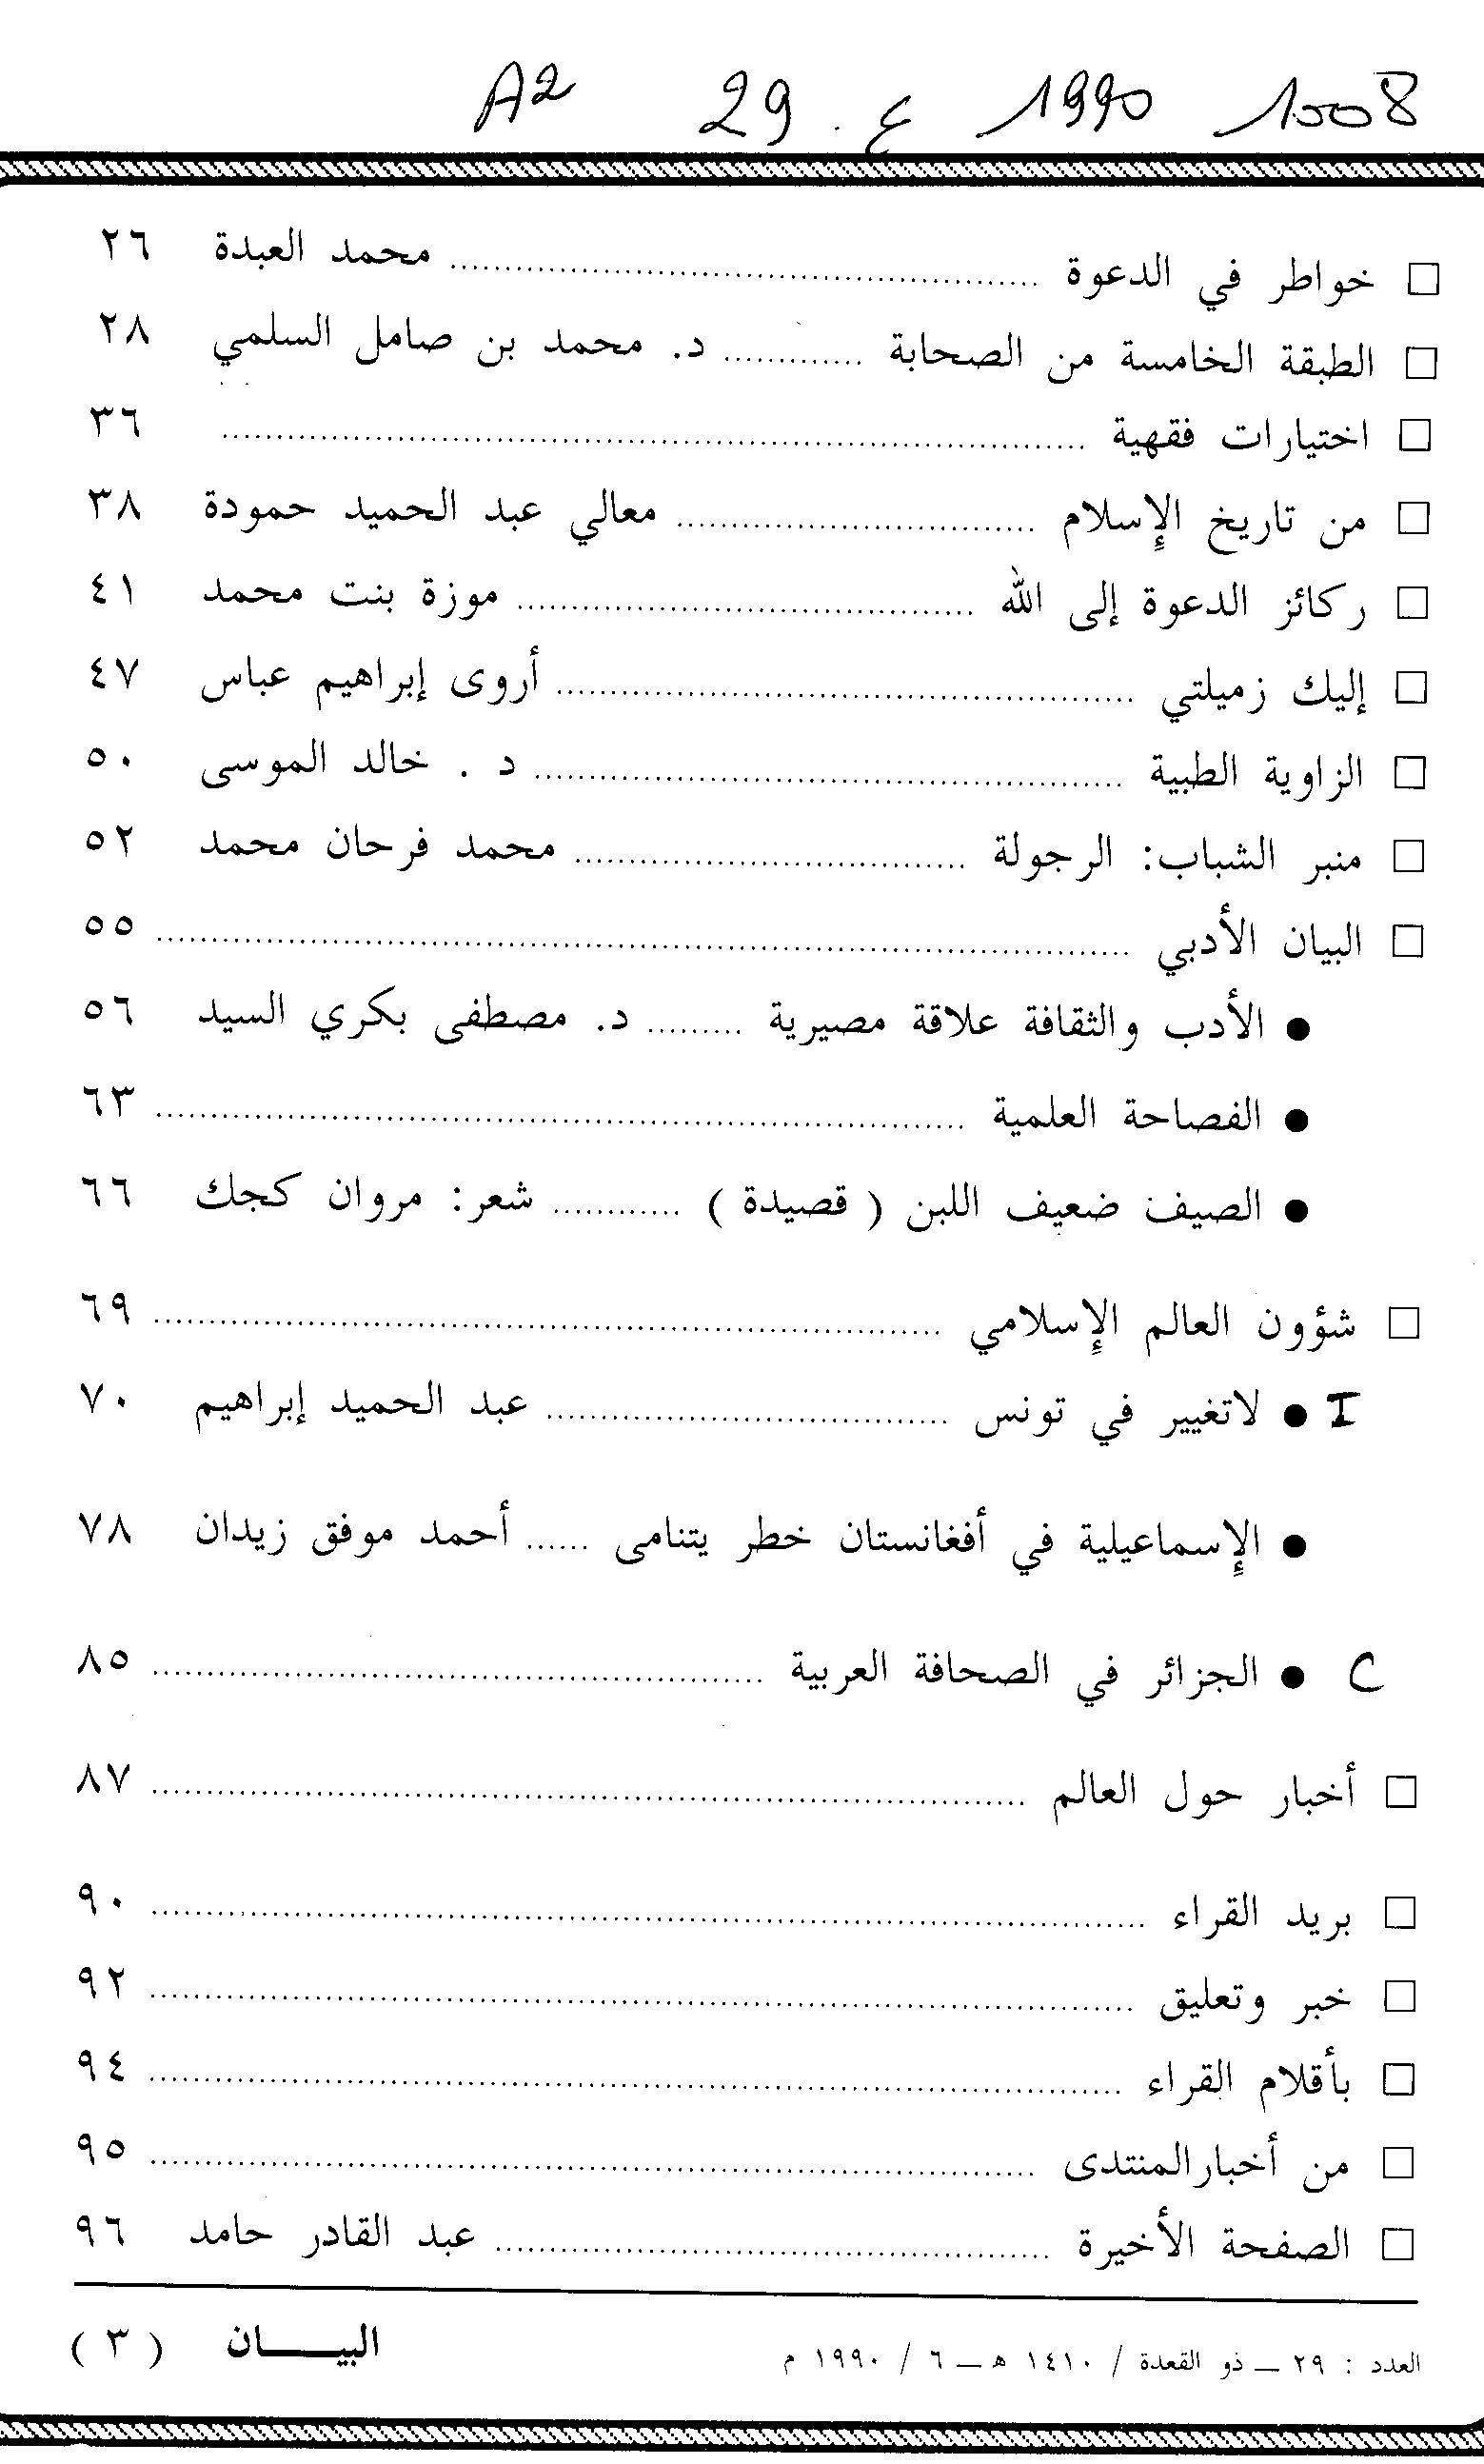 1008 1990 ع. 29 A2
□ خواطر في الدعوة ........ محمد العبدة ٢٦
□ الطبقة الخامسة من الصحابة ........ د. محمد بن صامل السلمي ٢٨
□ اختيارات فقهية ........ ٣٦
□ من تاريخ الإسلام ........ معالي عبد الحميد حمودة ٣٨
□ ركائز الدعوة إلى الله ........ موزة بنت محمد ٤١
□ إليك زميلتي ........ أروى إبراهيم عباس ٤٧
□ الزاوية الطبية ........ د . خالد الموسى ٥٠
□ منبر الشباب: الرجولة ........ محمد فرحان محمد ٥٢
□ البيان الأدبي ........ ٥٥
● الأدب والثقافة علاقة مصيرية ........ د. مصطفى بكري السيد ٥٦
● الفصاحة العلمية ........ ٦٣
● الصيف ضعيف اللبن ( قصيدة ) ........ شعر: مروان كجك ٦٦
□ شؤون العالم الإسلامي ........ ٦٩
I ● لاتغيير في تونس ........ عبد الحميد إبراهيم ٧٠
● الإسماعيلية في أفغانستان خطر يتنامى ...... أحمد موفق زيدان ٧٨
C ● الجزائر في الصحافة العربية ........ ٨٥
□ أخبار حول العالم ........ ٨٧
□ بريد القراء ........ ٩٠
□ خبر وتعليق ........ ٩٢
□ بأقلام القراء ........ ٩٤
□ من أخبارالمنتدى ........ ٩٥
□ الصفحة الأخيرة ........ عبد القادر حامد ٩٦
العدد : ٢٩ ــ ذو القعدة / ١٤١٠ هـ ــ ٦ / ١٩٩٠ م البيـــــان ( ٣ )